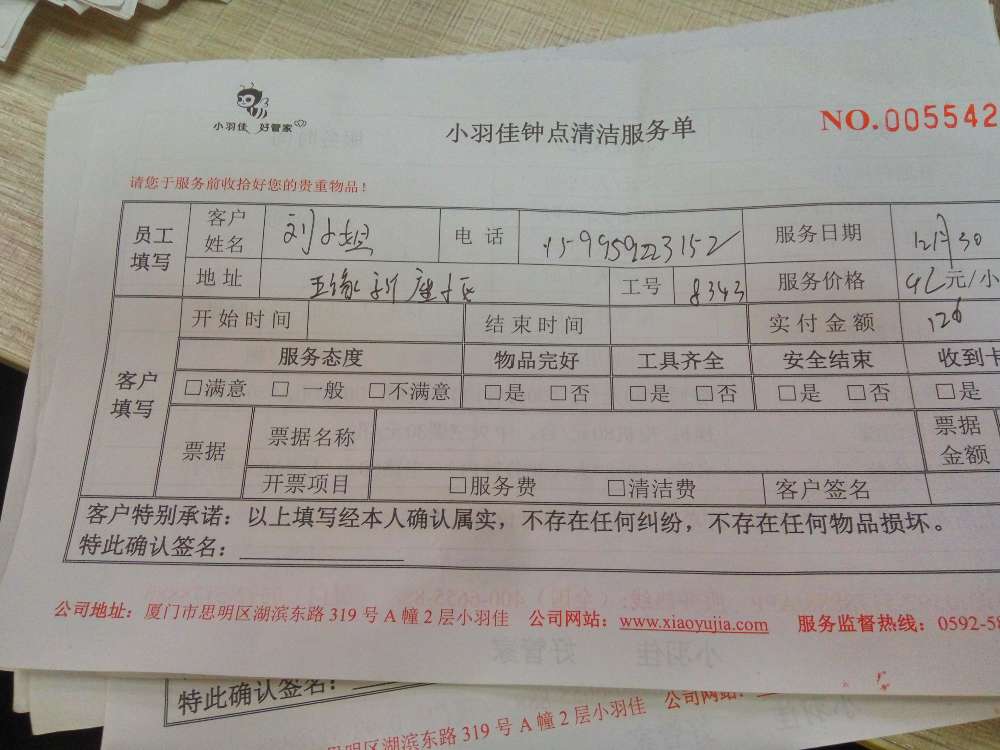 小羽佳 好管家
小羽佳钟点清洁服务单
NO.005542
请您于服务前收拾好您的贵重物品！
员工填写 客户姓名 刘小姐 电话 服务日期 12月30
地址 五缘新座 工号 8343 服务价格 元/小
客户填写 开始时间 结束时间 实付金额 126
服务态度 物品完好 工具齐全 安全结束 收到卡
□满意 □一般 □不满意 □是 □否 □是 □否 □是 □否 □是
票据 票据名称 票据金额
开票项目 □服务费 □清洁费 客户签名
客户特别承诺：以上填写经本人确认属实，不存在任何纠纷，不存在任何物品损坏。
特此确认签名：
公司地址：厦门市思明区湖滨东路 319 号 A 幢 2 层小羽佳 公司网站：www.xiaoyujia.com 服务监督热线：0592-58
特此确认签名：
思明区湖滨东路 319 号 A 幢 2 层小羽佳 公司网站：